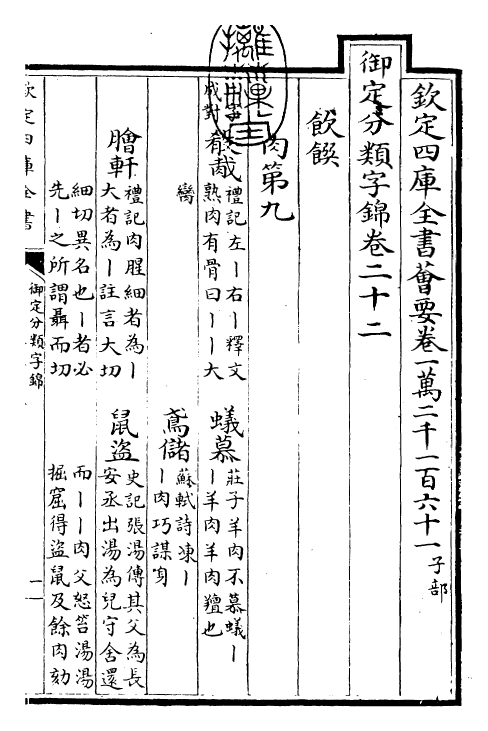 欽定四庫全書薈要卷一萬二千一百六十一 子部
御定分類字錦卷二十二
飲饌
肉第九
成對
殽胾 禮記左丨右丨釋文
熟肉有骨曰丨丨大
臠
蟻慕 莊子羊肉不慕蟻丨
丨羊肉羊肉羶也
鳶儲 蘇軾詩凍丨
丨肉巧謀
膾軒 禮記肉腥細者為丨
大者為丨註言大切
細切異名也丨者必
先丨之所謂聶而切
鼠盜 史記張湯傳其父為長
安丞出湯為兒守舍還
而丨丨肉父怒笞湯湯
掘窟得盜鼠及餘肉劾
欽定四庫全書
御定分類字錦
一